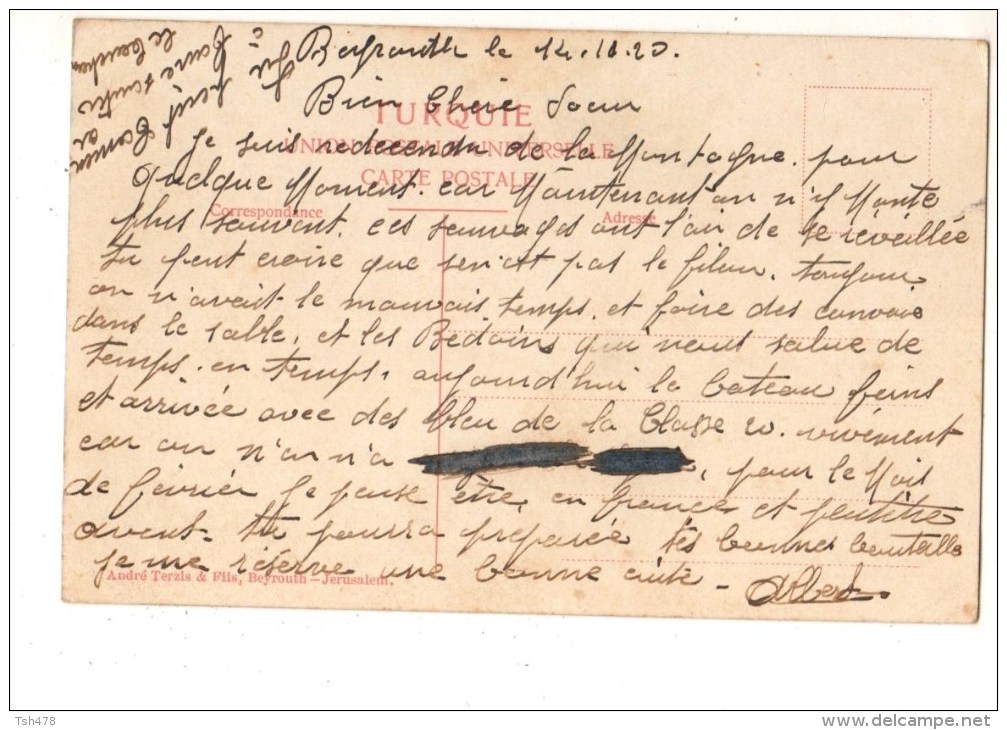 Beyrouth le 14.10.20.
Bien Chère Soeur
TURQUIE
UNION POSTALE UNIVERSELLE
CARTE POSTALE
Correspondance
Adresse
Je suis redecendu de la Montagne. pour
quelque Moment. car Maintenant on n'y Monte
plus souvent. ces sauvages ont l'air de se réveillée
tu peut croire que sen'est pas le filon. toujours
on n'avait le mauvais temps. et faire des convois
dans le sable, et les Bedoins qui nous salue de
temps. en temps, aujourd'hui le bateau
et arrivée avec des bleu de la Classe 20. vivement
car on n'en n'a , pour le Mois
de février Je pense être, en france et peutêtre
avent. tu pourra preparée tes bonnes bouteille
je me réserve une bonne cuite - Albert.
André Terzis & Fils, Beyrouth - Jerusalem.
Tsh478
www.delcampe.net